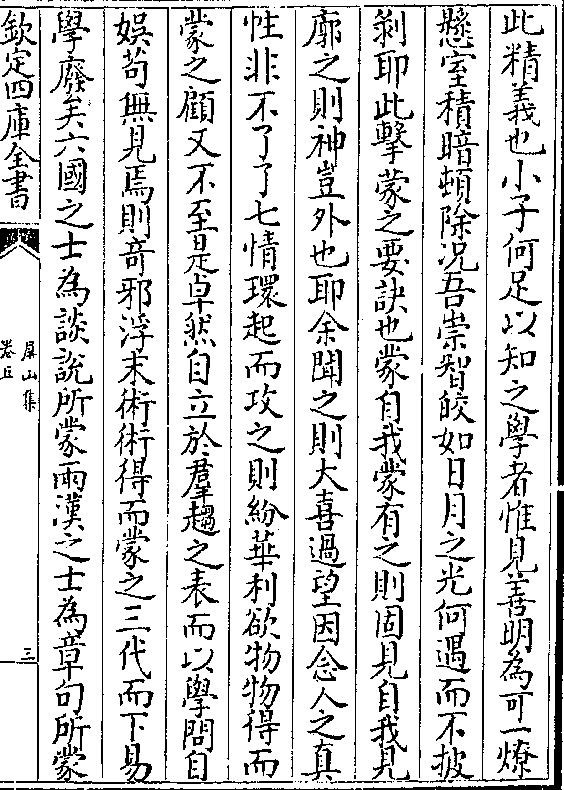 此精義也小子何足以知之學者惟見善明為可一燎
懸室積暗頓除况吾崇智皎如日月之光何遇而不披
剝耶此擊蒙之要訣也蒙自我蒙有之則固見自我見
廓之則神豈外也耶余聞之則大喜過望因念人之真
性非不了了七情環起而攻之則紛華利欲物物得而
蒙之顧又不至是卓然自立於羣趨之表而以學問自
娛苟無見焉則竒邪浮末術術得而蒙之三代而下易
學廢矣六國之士為談說所蒙兩漢之士為章句所蒙
欽定四庫全書
屏山集
卷五
三